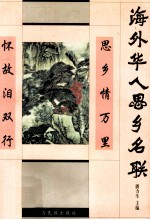 海外华人思乡名联
思乡情万里
怀故泪双行
主编